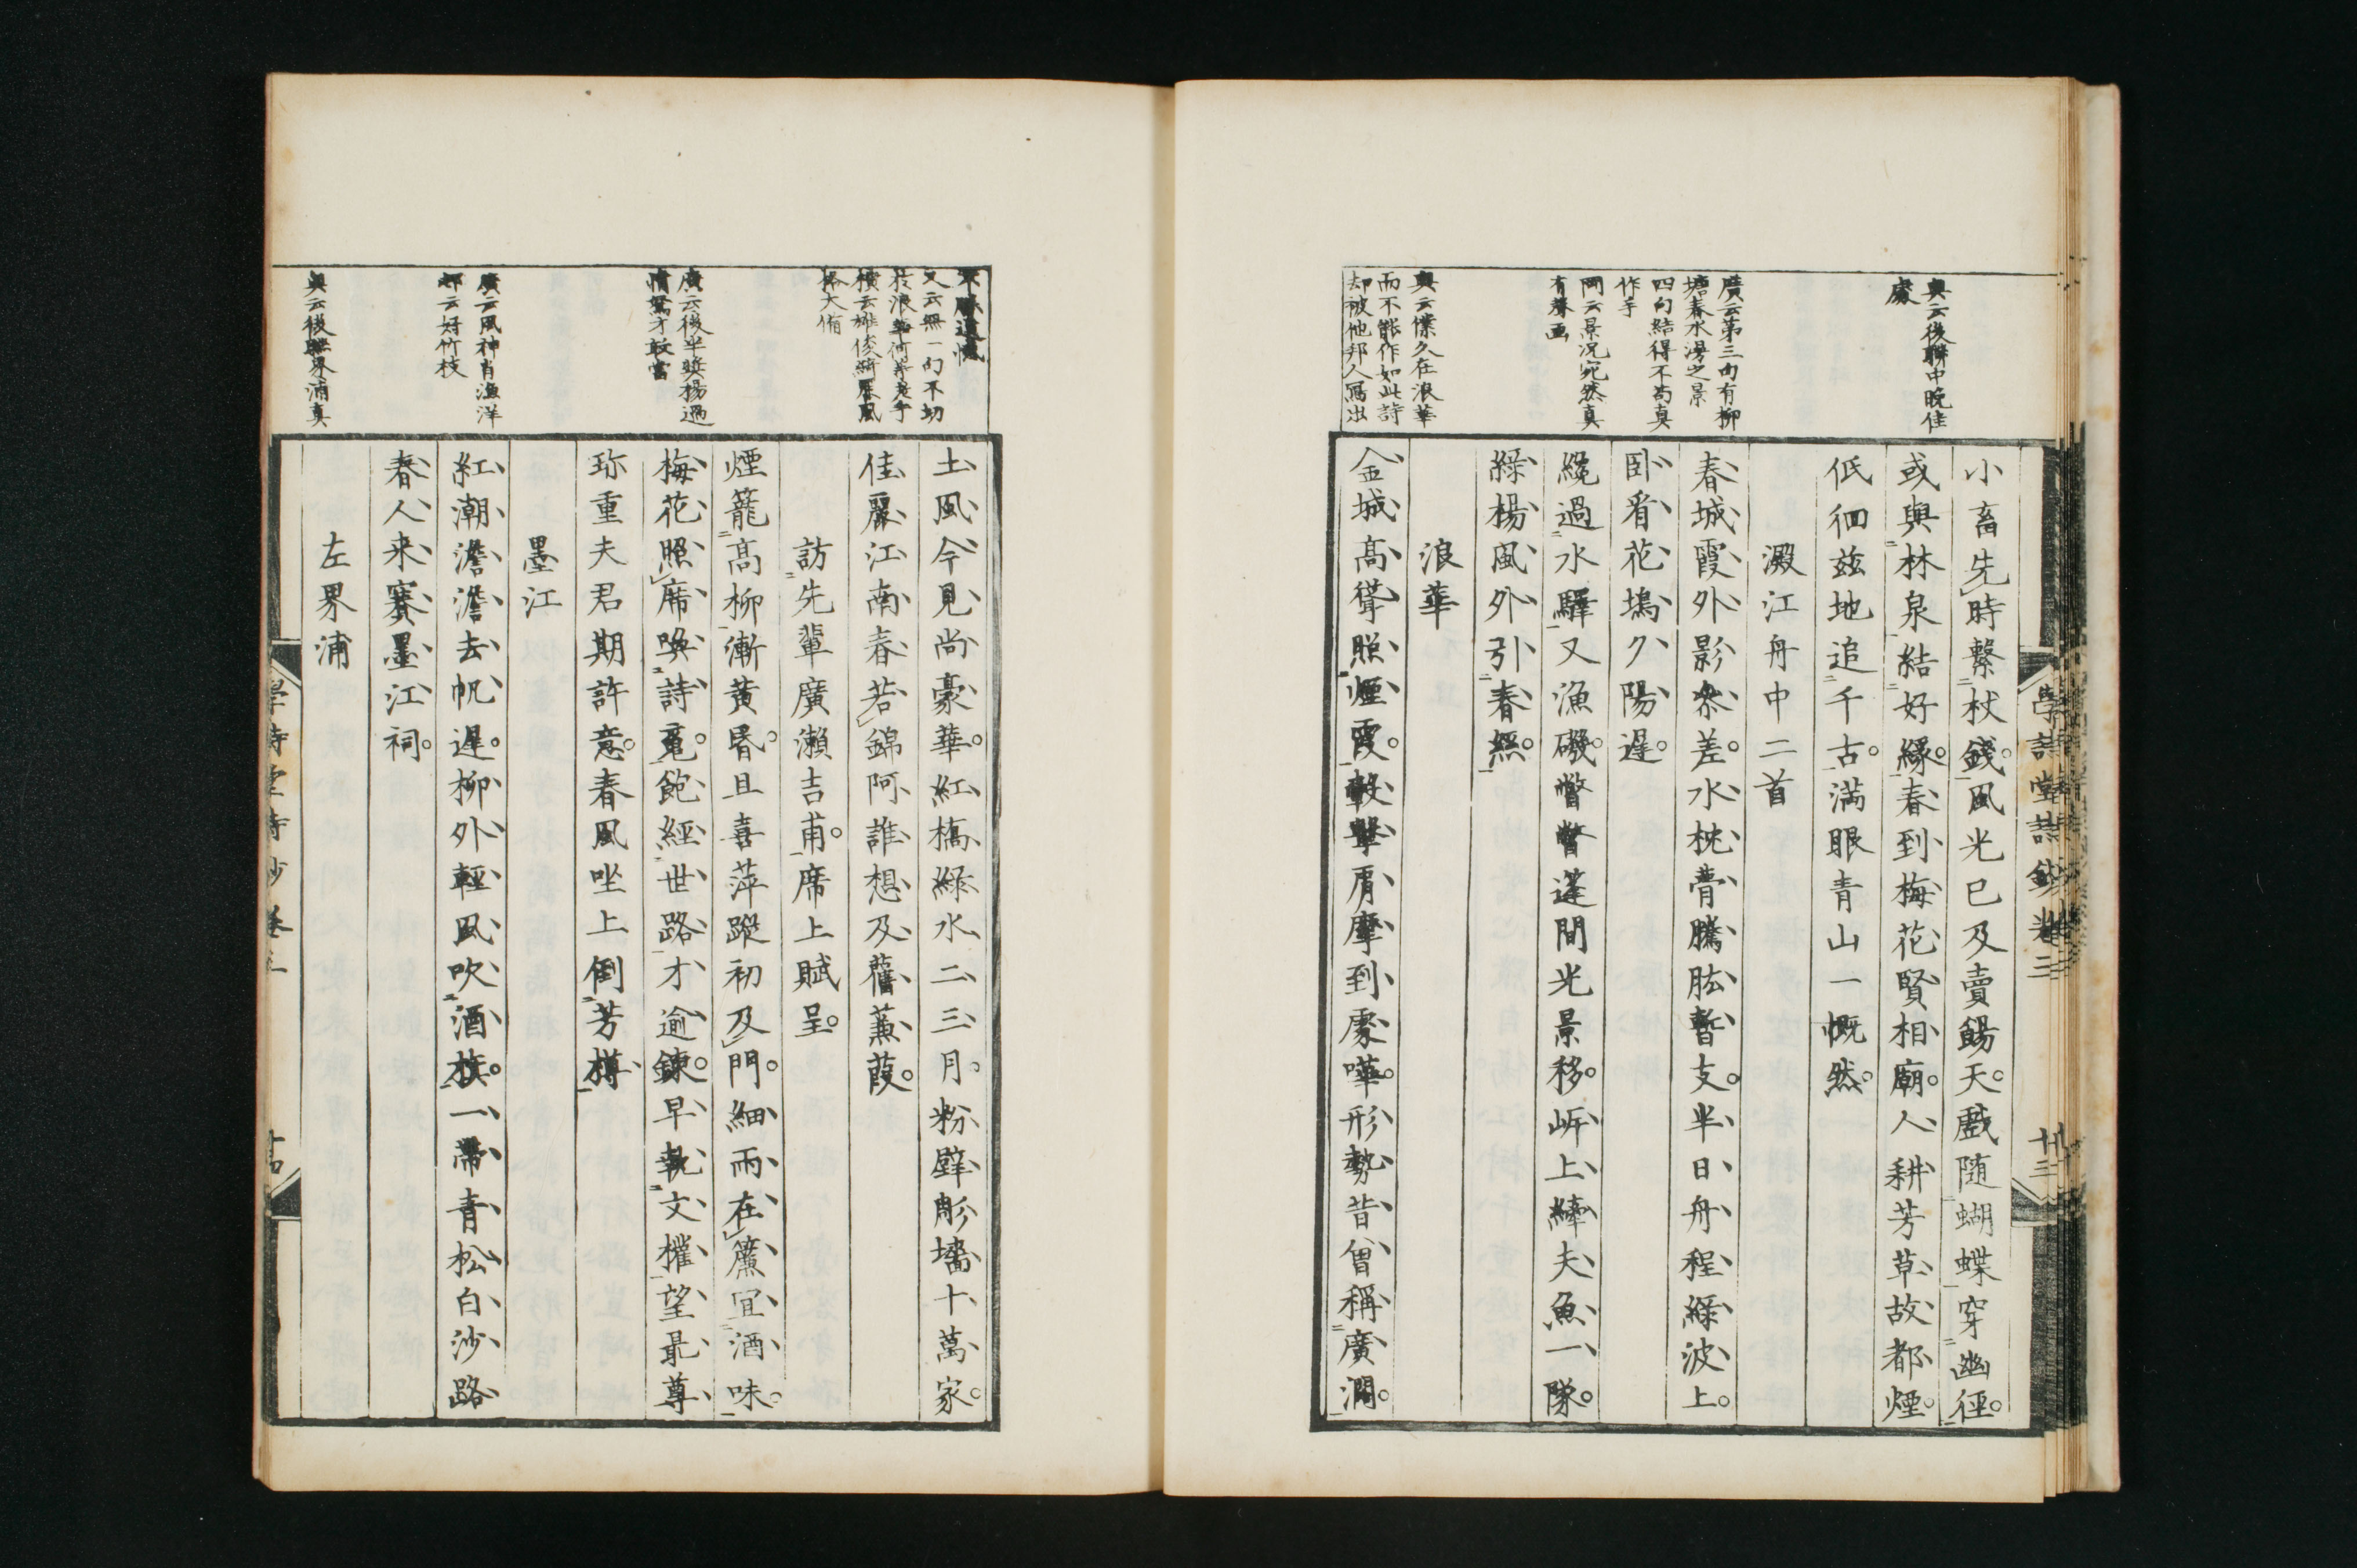 奥云後聯中晩佳
處
廣云第三句有柳
塘春水漫之景
四句結得不苟真
作手
同云景况宛然真
有聲画
奥云僕久在浪華
而不能作如此詩
却被他邦人寫出
小畜先時繫杖錢。風光已及賣餳天。戲随蝴蝶穿幽徑。
或與林泉結好緣。春到梅花賢相廟。人耕芳草故都煙。
低徊兹地追千古。満眼青山一慨然。
澱江舟中二首
春城霞外影叅差。水枕瞢騰肱暫支。半日舟程綠波上。
卧看花塢夕陽遲。
纔過水驛又漁磯。瞥瞥蓬間光景移。岍上縴夫魚一隊。
綠楊風外引春絲。
浪華
金城高聳照煙霞。轂擊肩摩到處嘩。形勢昔曽稱廣濶。
學詩堂詩鈔卷三
十三
不勝遺憾
又云無一句不切
於浪華何等老手
横云雄俊綺麗風
格大備
廣云後半奬揚過
情駑才敢當
廣云風神肖漁洋
邨云好竹枝
奥云後聯界浦真
土風今見尚豪華。紅橋綠水二三月。粉壁彫墻十萬家。
佳麗江南春若錦。阿誰想及舊蒹葭。
訪先輩廣瀬吉甫。席上賦呈。
煙籠高柳漸黄昬。且喜萍蹤初及門。細雨在簾宜酒味。
梅花照席喚詩䰟。飽經世路才逾鍊。早執文權望最尊
珎重夫君期許意。春風坐上倒芳樽
墨江
紅潮澹澹去帆遲。柳外輕風吹酒旗。一帶青松白沙路
春人来賽墨江祠。
左界浦
學詩堂詩鈔卷三